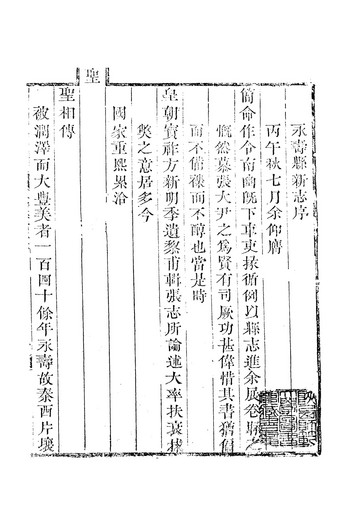 永壽縣新志序
丙午秋七月余仰膺
簡命作令南豳旣下車吏掾循例以縣志進余展卷
慨然慕張大尹之爲賢有司厥功甚偉惜其書猶
而不備祿而不醇也當是時
皇朝寶祚方新明季遺黎甫輯張志所論述大率扶衰拯
獘之意居多今
國家重熙累洽
聖
聖相傳
被潤澤而大豐美者一百四十餘年永壽故秦西片壤